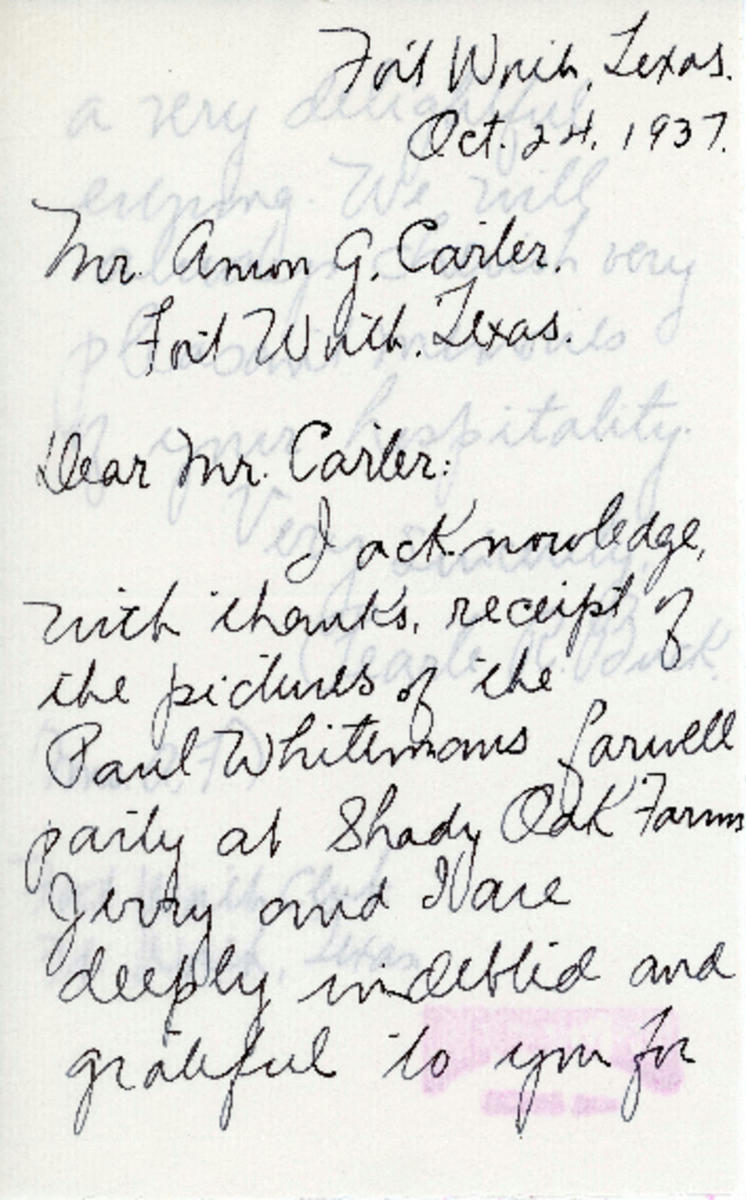 Fort Worth, Texas.
Oct. 24, 1937.
Mr. Amon G. Carter.
Fort Worth, Texas.
Dear Mr. Carter:
I acknowledge,
with thanks, receipt of
the pictures of the
Paul Whitemans farwell
party at Shady Oak Farm
Jerry and I are
deeply indebted and
grateful to you for